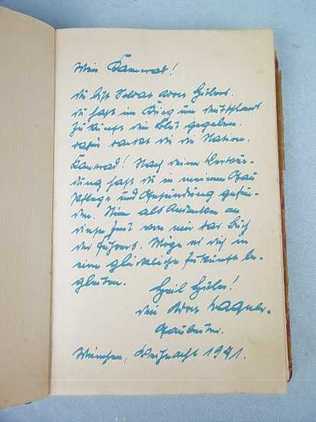 Mein Kamerad!
Du bist Soldat Adolf Hitlers.
Du hast im Krieg um Deutschland
Zukunft Dein Blut gegeben.
Dafür dankt Dir die Nation.
Kamerad! Nach Deiner Verwun-
dung hast Du in meinem Gau
Pflege und Gesundung gefun-
den. Nimm als Andenken an
diese Zeit von mir das Buch
des Führers. Möge es Dich in
eine glückliche Zukunft be-
gleiten.
Heil Hitler!
Dein Adolf Wagner.
Gauleiter.
München, Weihnacht 1941.